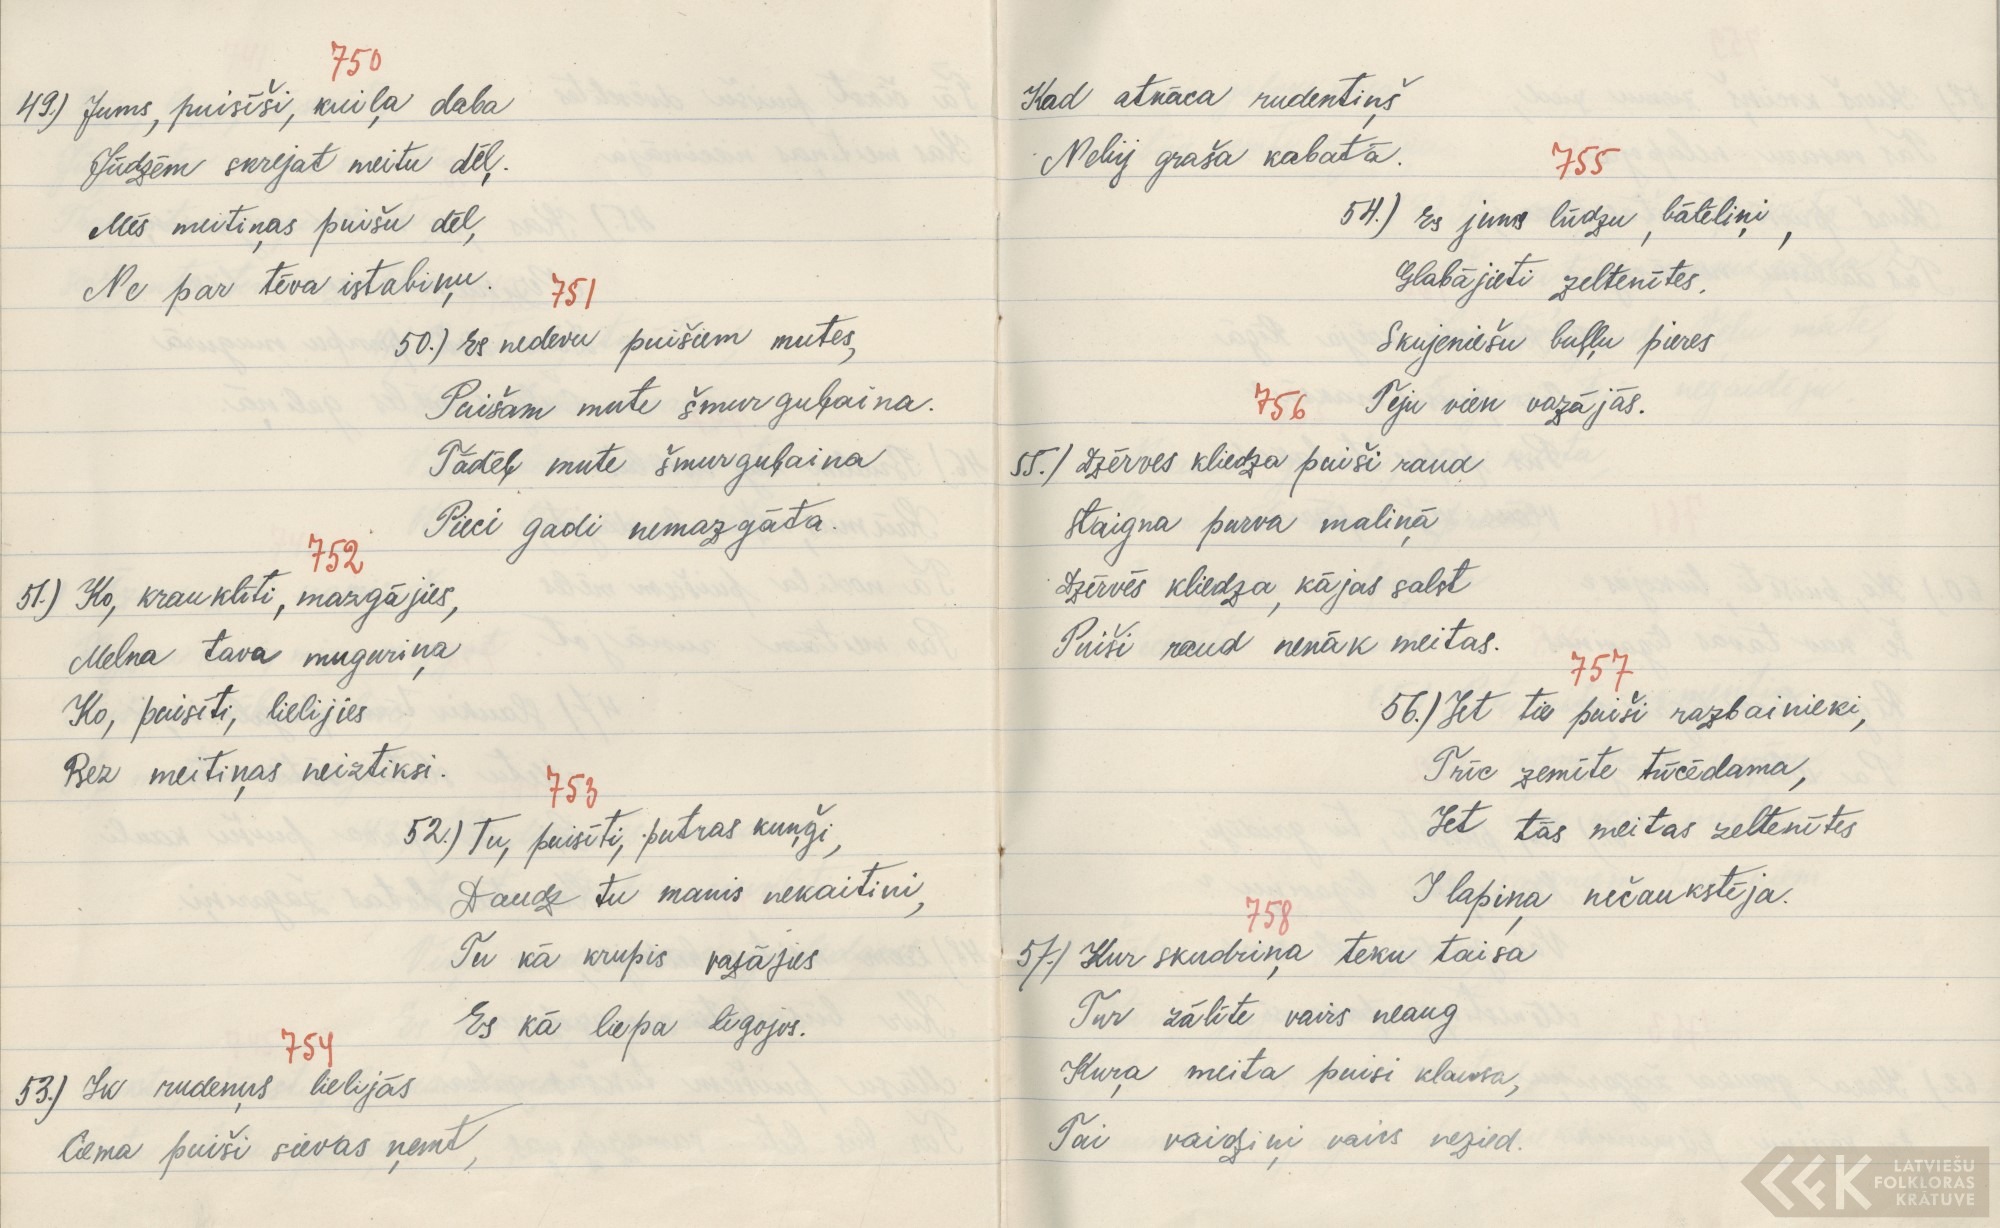 750
49.) Jums, puisīši, kuiļa daba
Jūdzēm skrejat meitu dēļ.
Mēs meitiņas puišu dēļ,
Ne par tēva istabiņu.
751
50.) Es nedevu puišiem mutes,
Puišam mute šmurguļaina.
Tādēļ mute šmurguļaina
Pieci gadi nemazgāta.
752
51.) Ko, krauklīti, mazgājies,
Melna tava muguriņa
Ko, puisīti, lielījies
Bez meitiņas neiztiksi.
753
52.) Tu, puisīti, putras kuņģi,
Daudz tu manis nekaitini,
Tu kā krupis vazājies
Es kā liepa līgojos.
754
53.) Ik rudeņus lielījās
Ciema puiši sievas ņemt,
Kad atnāca rudentiņš
Nebij graša kabatā.
755
54.) Es jums lūdzu, bāleliņi,
Glabājieti zeltenītes.
Skujeniešu buļļu pieres
Teju vien vazājās.
756
55.) Dzērves kliedza puiši raud
Staigna purva maliņā
Dzērvēs kliedza, kājas salst
Puiši raud nenāk meitas.
757
56.) Iet tie puiši razbainieki,
Trīc zemīte tūcēdama,
Iet tās meitas zeltenītes
I lapiņa nečaukstēja.
758
57.) Kur skudriņa teku taisa
Tur zālīte vairs neaug
Kuŗa meita puisi klausa,
Tai vaidziņi vairs nezied.
LATVIEŠU
FOLKLORAS
KRĀTUVE